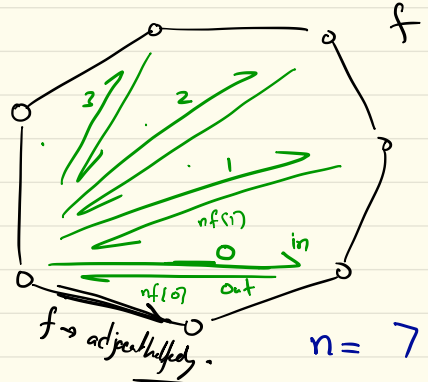 f
3
2
1
nf(1)
0
in
nf(0)
out
f → adjacent halfedge.
n = 7